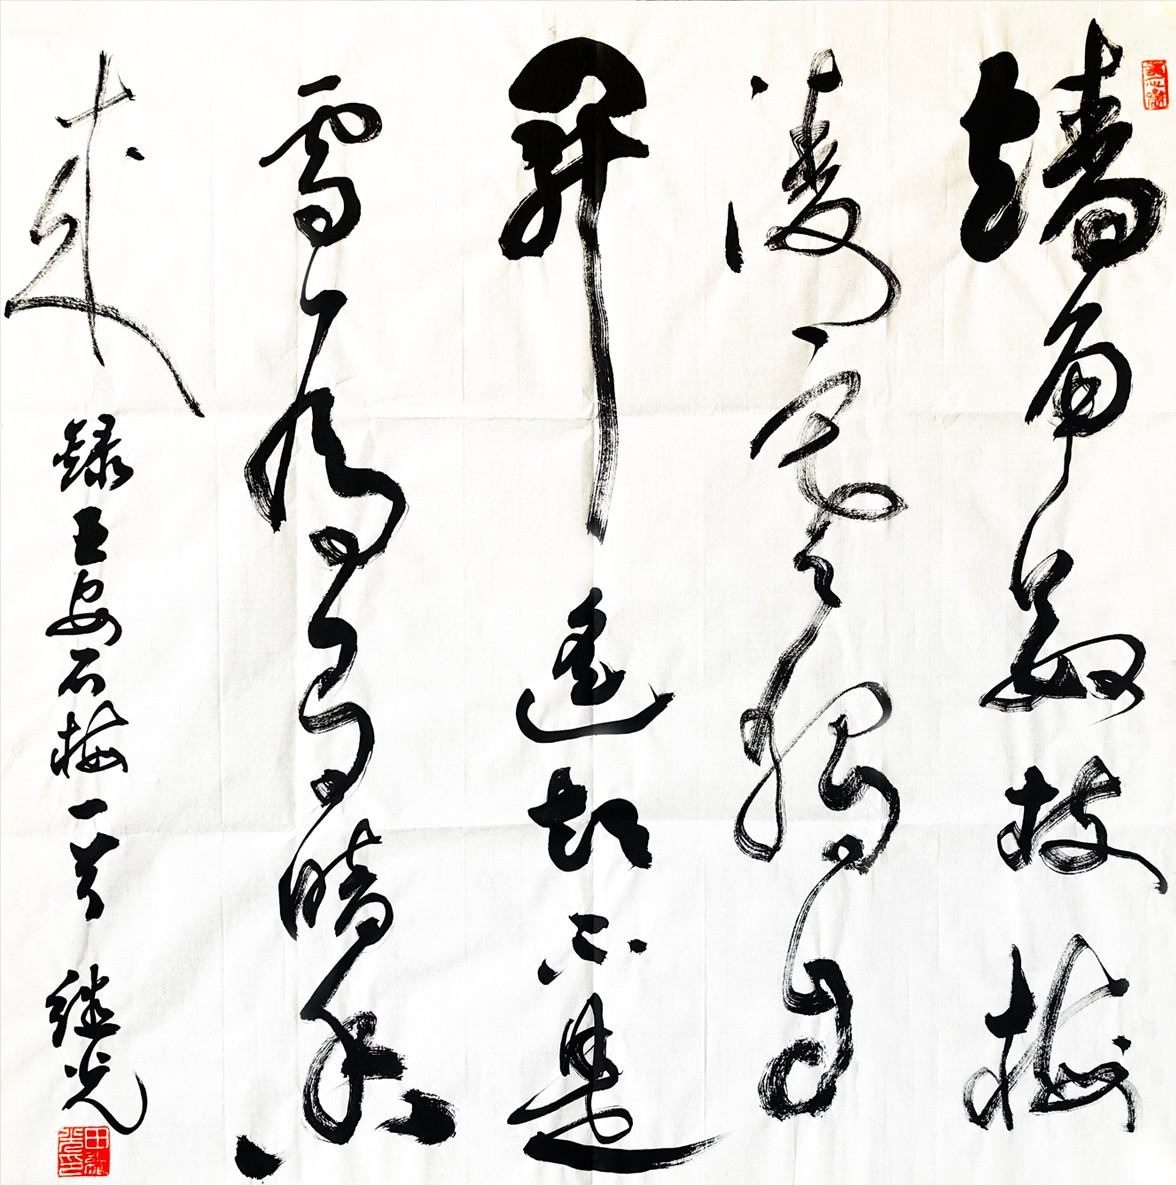 墙角數枝梅
凌寒獨自
開遥知不是
雪為有暗香
来 録王安石梅一首 继光